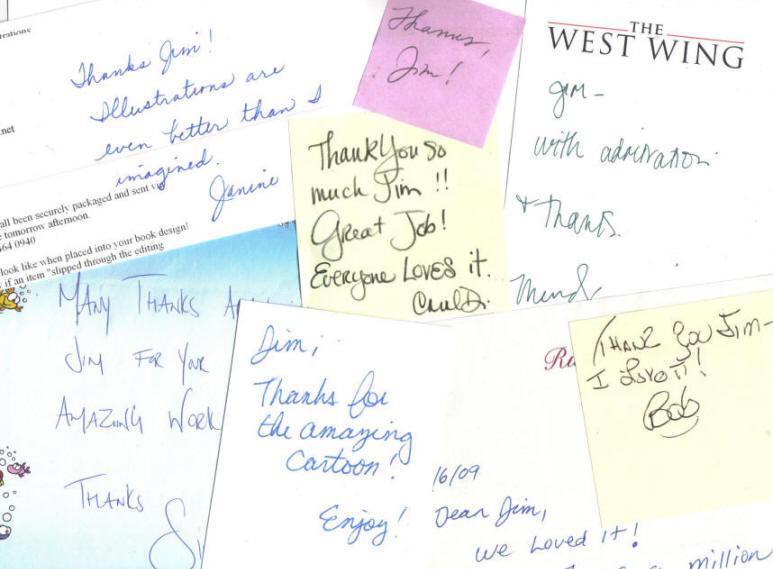 Thanks Jim!
Illustrations are
even better than I
imagined.
Janine
.net
all been securely packaged and sent via
e tomorrow afternoon.
64 0940
look like when placed into your book design!
if an item "slipped through the editing
Thanks,
Jim!
THE
WEST WING
Jim -
with admiration
+ Thanks.
Thank You so
much Jim !!
Great Job!
Everyone Loves it.
Many Thanks
Jim for your
Amazing Work
Thanks
Jim,
Thanks for
the amazing
Cartoon!
Enjoy!
Thank you Jim-
I Love it!
Bob
16/09
Dear Jim,
We Loved it!
a million